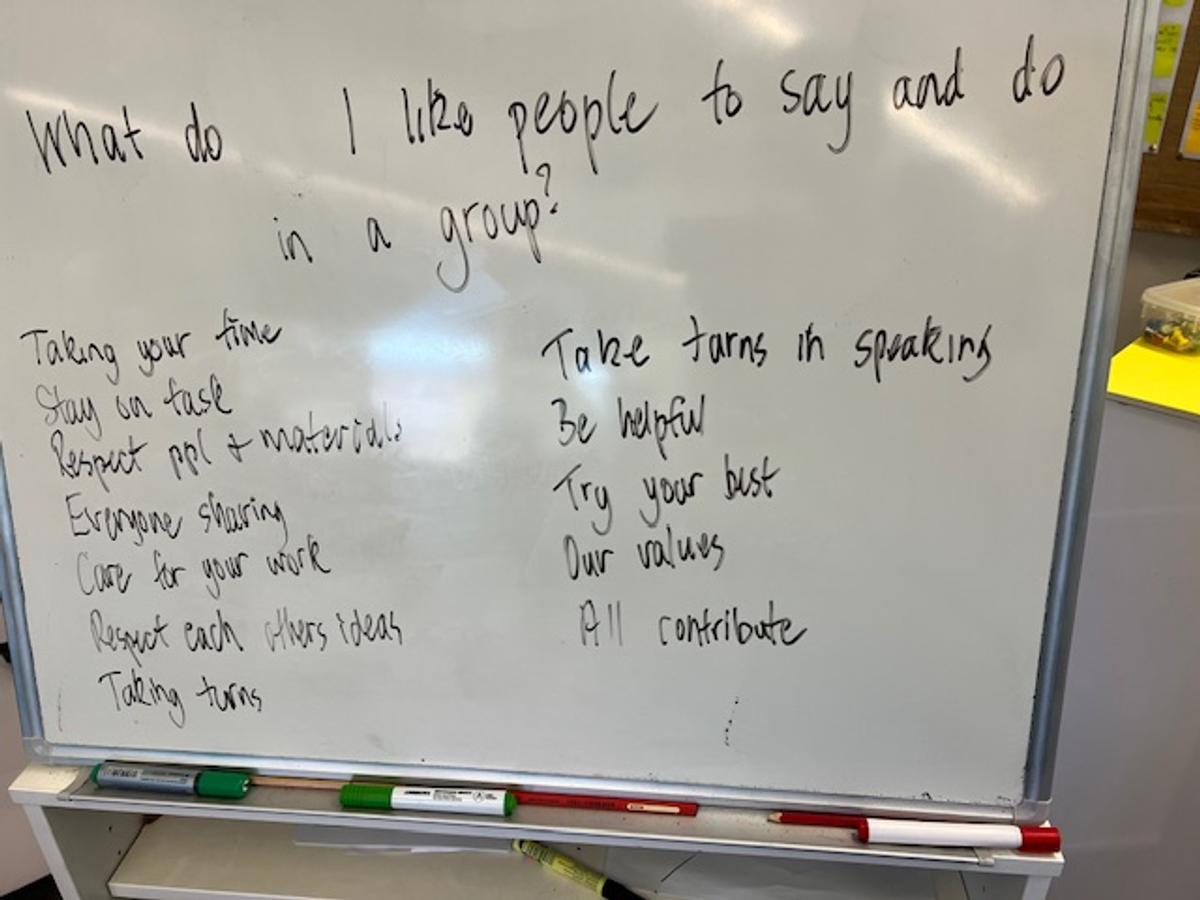 What do I like people to say and do
in a group?
Taking your time
Stay on task
Respect ppl + materials
Everyone sharing
Care for your work
Respect each others ideas
Taking turns
Take turns in speaking
Be helpful
Try your best
Our values
All contribute